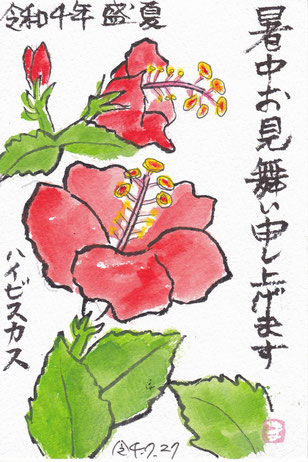 暑中お見舞い申し上げます
令和4年 盛夏
ハイビスカス
令4.7.27